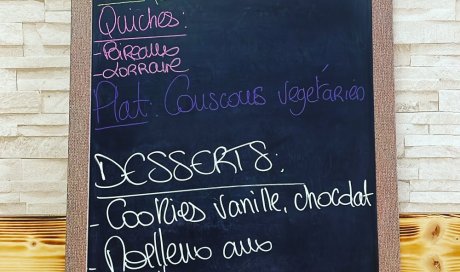 Quiches:
- Poireaux
- Lorraine
Plat: Couscous végétarien
DESSERTS:
- Cookies vanille, chocolat
- Moelleux aux